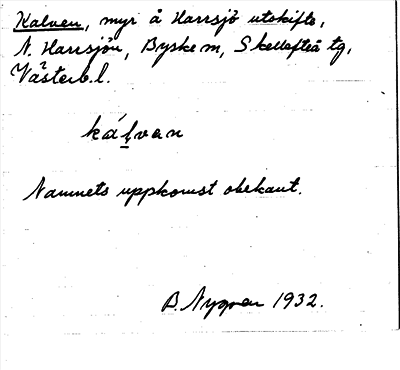 Kalven, myr å Harrsjö utskifte,
N. Harrsjön, Byske sn, Skellefteå tg,
Västerb. l.
kálvan
Namnets uppkomst obekant.
B. Nygren 1932.